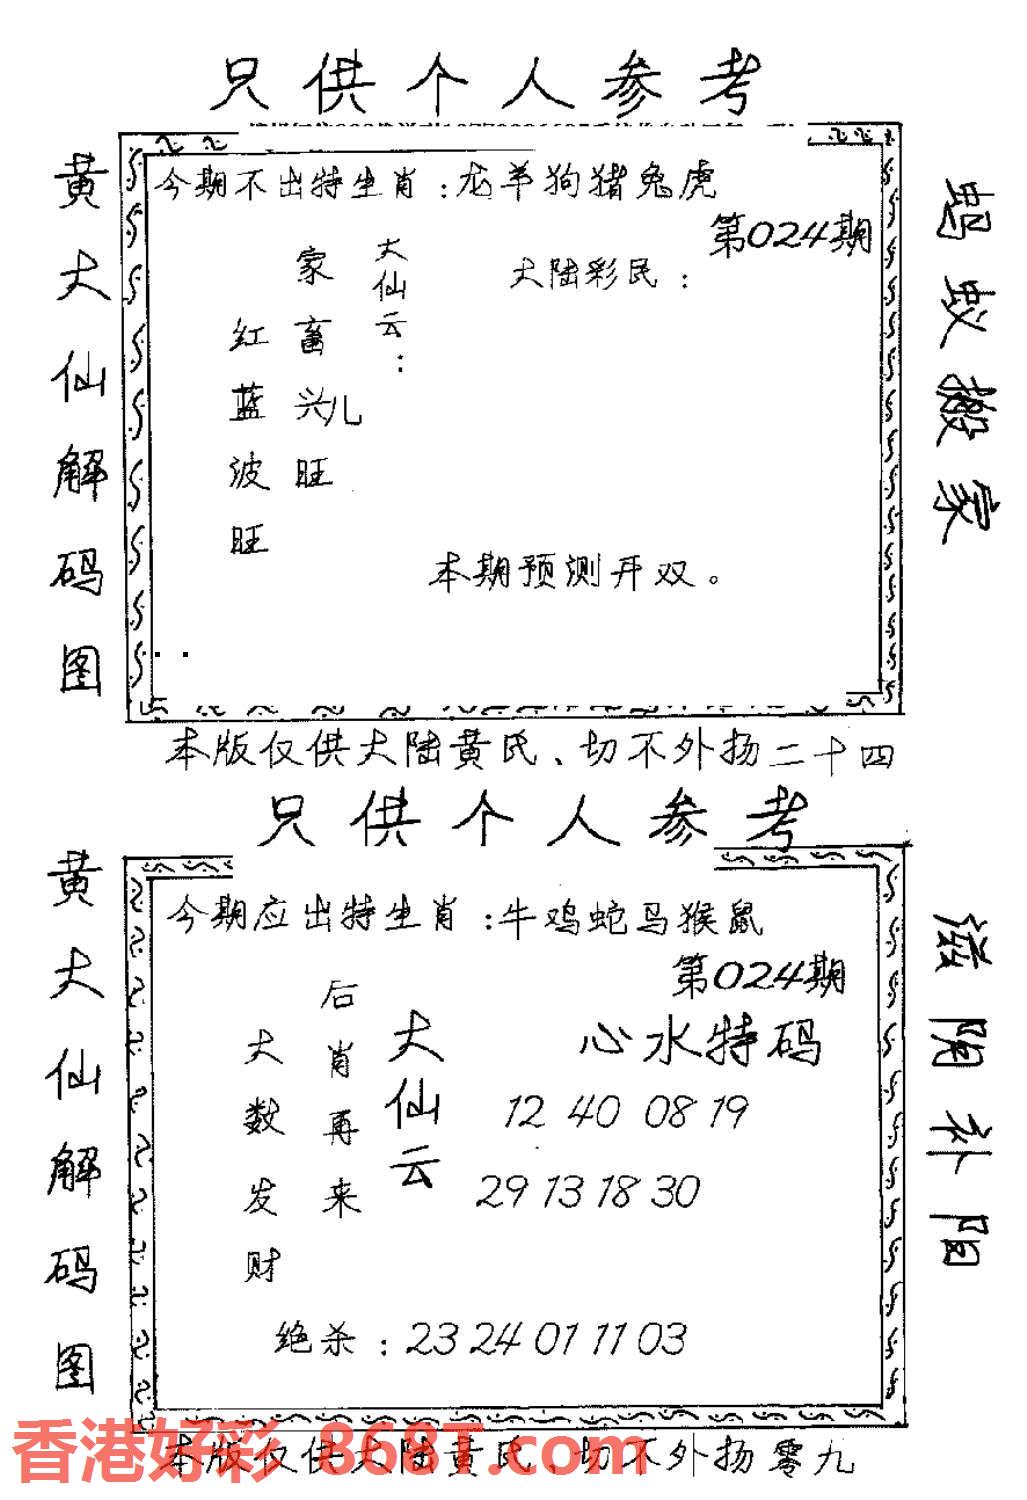 只供个人参考
黄大仙解码图
今期不出特生肖:龙羊狗猪兔虎
第024期
大陆彩民:
大仙云:
家畜兴旺
儿
红蓝波旺
本期预测开双。
蚂蚁搬家
本版仅供大陆黄民、切不外扬二十四
只供个人参考
黄大仙解码图
今期应出特生肖:牛鸡蛇马猴鼠
第024期
心水特码
大仙云
后肖再来
大数发财
12 40 08 19
29 13 18 30
绝杀:23 24 01 11 03
滋阴补阳
香港好彩 868T.com
本版仅供大陆黄民、切不外扬零九